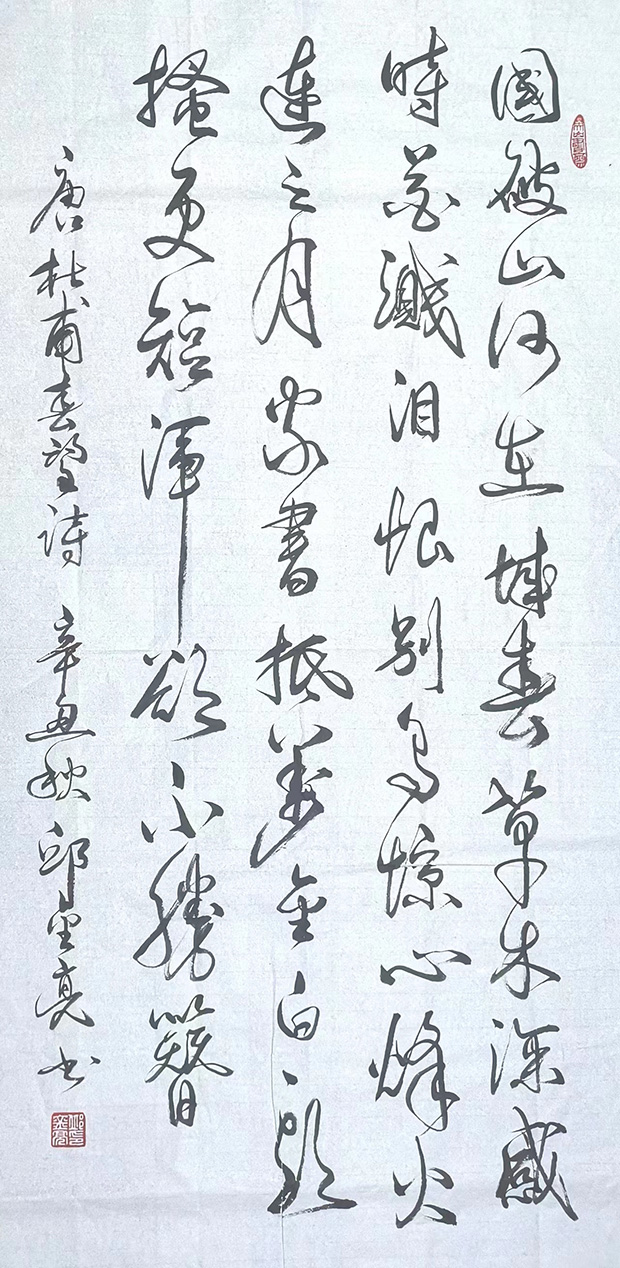 國破山河在城春草木深感
時花濺泪恨别鳥惊心烽火
連三月家書抵萬金白頭
搔更短渾欲不勝簪
唐杜甫春望詩 辛丑秋邱金亮书